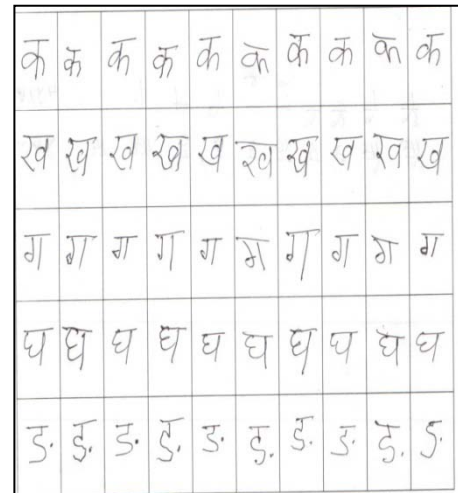 क क क क क क क क क क
ख ख ख ख ख ख ख ख ख ख
ग ग ग ग ग ग ग ग ग ग
घ घ घ घ घ घ घ घ घ घ
ङ ङ ङ ङ ङ ङ ङ ङ ङ ङ